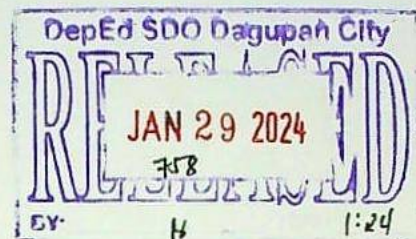 DepEd SDO Dagupan City
RELEASED
JAN 29 2024
758
BY: H 1:24